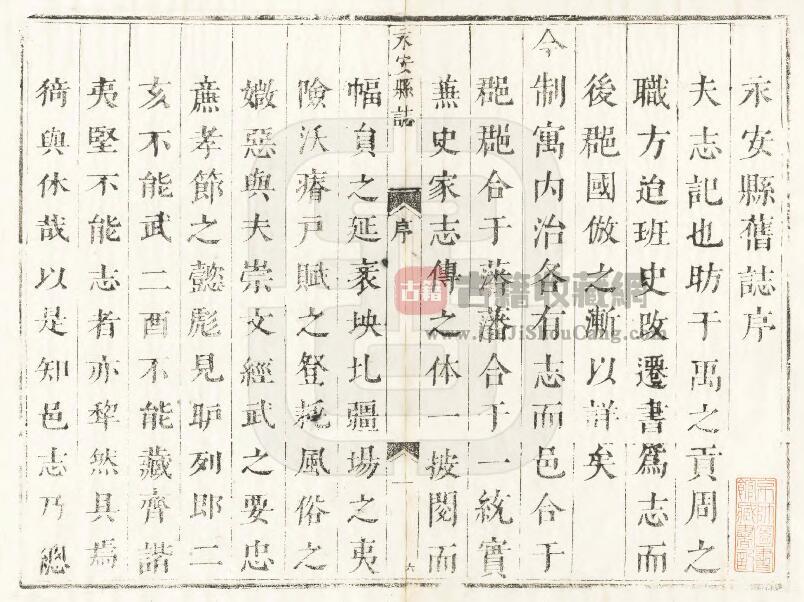 永安縣舊誌序
夫志記也昉于禹之貢周之
職方迨班史攺遷書爲志而
後郡國倣之漸以詳矣
今
制寓内治各有志而邑合于
郡郡合于藩藩合于一統實
兼史家志傳之体一披閱而
永安縣誌
序
一
六
幅員之延袤坱圠疆場之夷
險沃瘠戸賦之登耗風俗之
媺惡與夫崇文經武之要忠
亷孝節之懿彪見臚列即二
亥不能武二酉不能藏齊諧
夷堅不能志者亦犂然具焉
猗與休哉以是知邑志乃總
古籍 古籍收藏網
GuJiShouCang.com